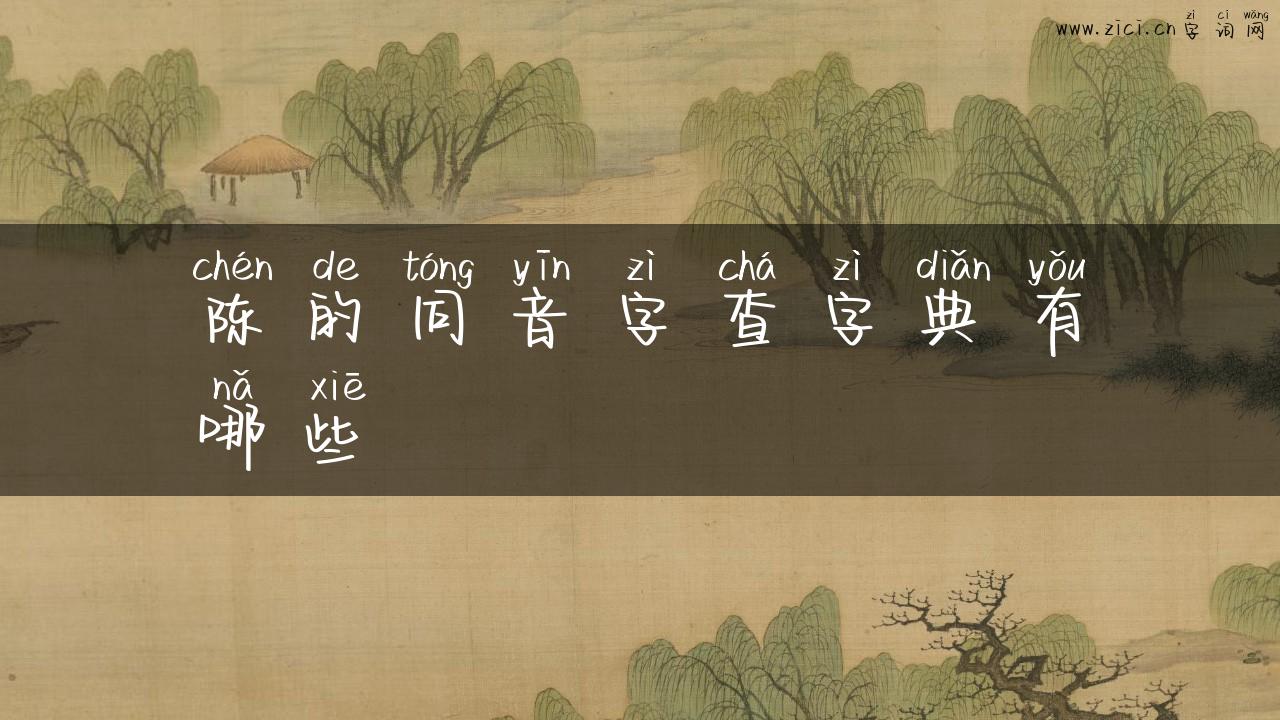 zì cí wǎng
www.zici.cn 字词网
chén de tóng yīn zì chá zì diǎn yǒu
陈的同音字查字典有
nǎ xiē
哪些